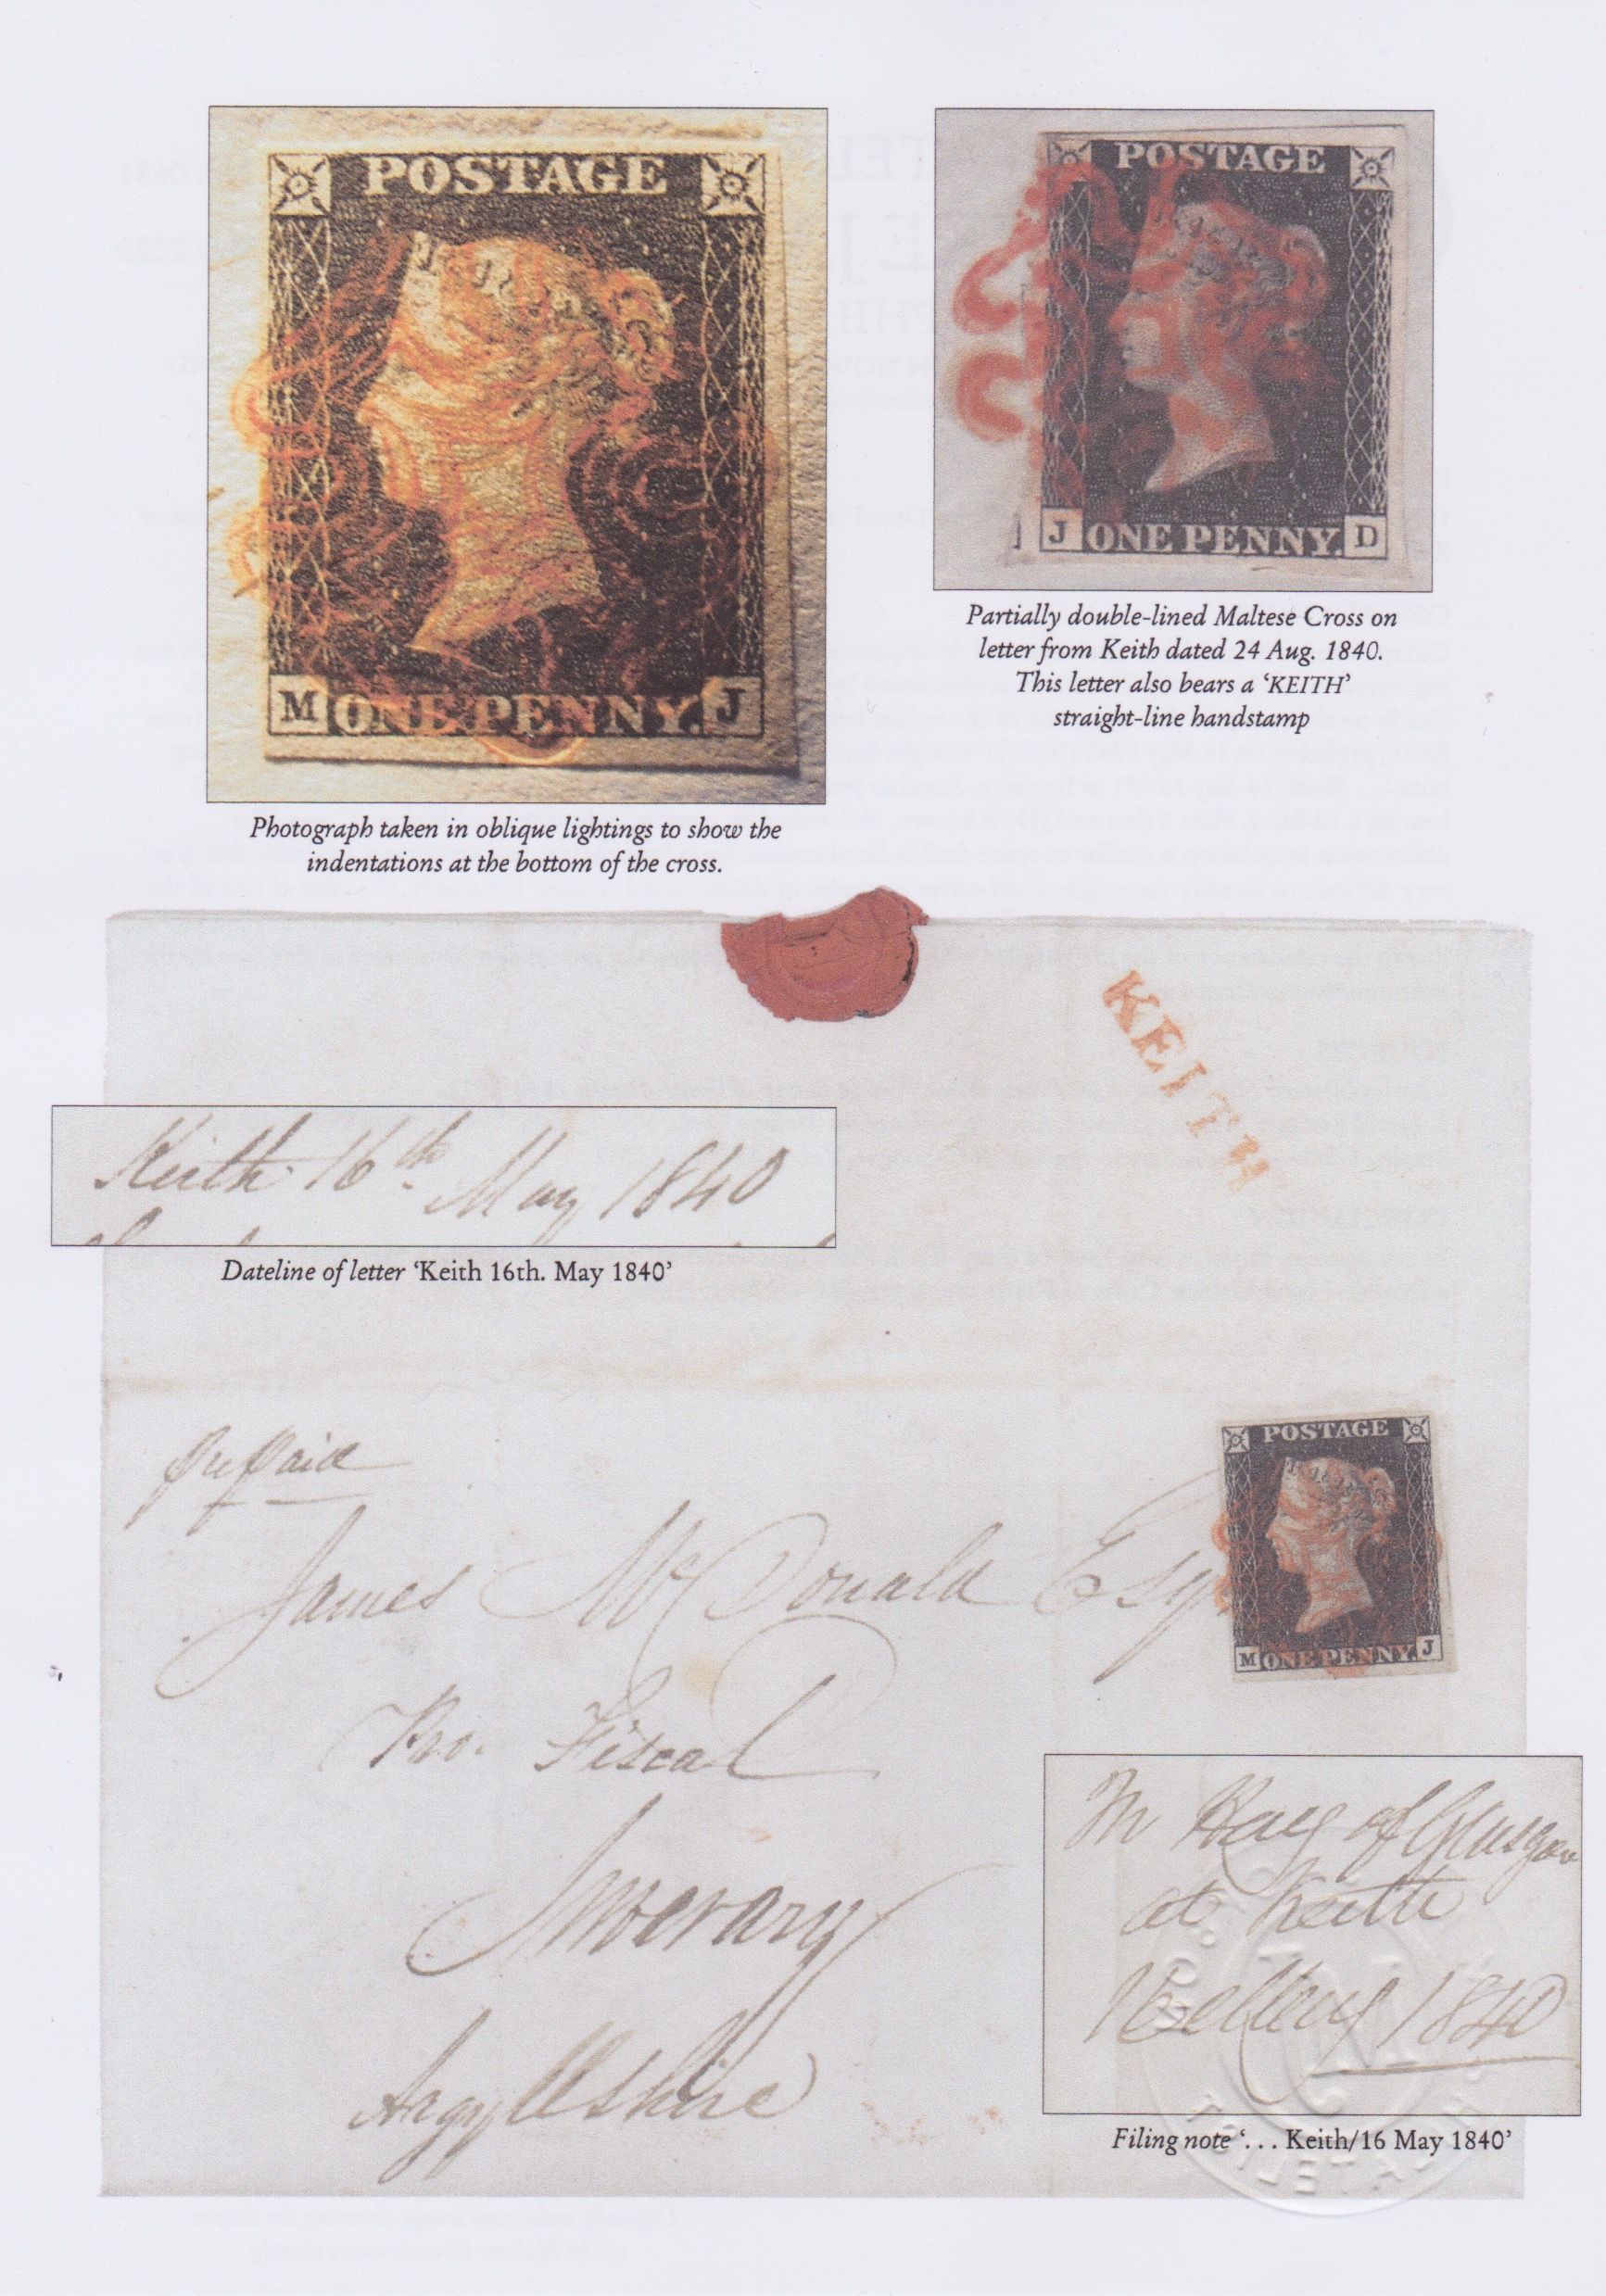 POSTAGE
M ONE PENNY. J
Photograph taken in oblique lightings to show the
indentations at the bottom of the cross.
POSTAGE
J ONE PENNY. D
Partially double-lined Maltese Cross on
letter from Keith dated 24 Aug. 1840.
This letter also bears a ‘KEITH’
straight-line handstamp
KEITH
Keith 16th. May 1840
Dateline of letter ‘Keith 16th. May 1840’
prepaid
James McDonald Esqr.
POSTAGE
M ONE PENNY. J
Pro. Fiscal
Inverary
Argyllshire
of Glasgow
at Keith
1840
Filing note ‘. . . Keith/16 May 1840’